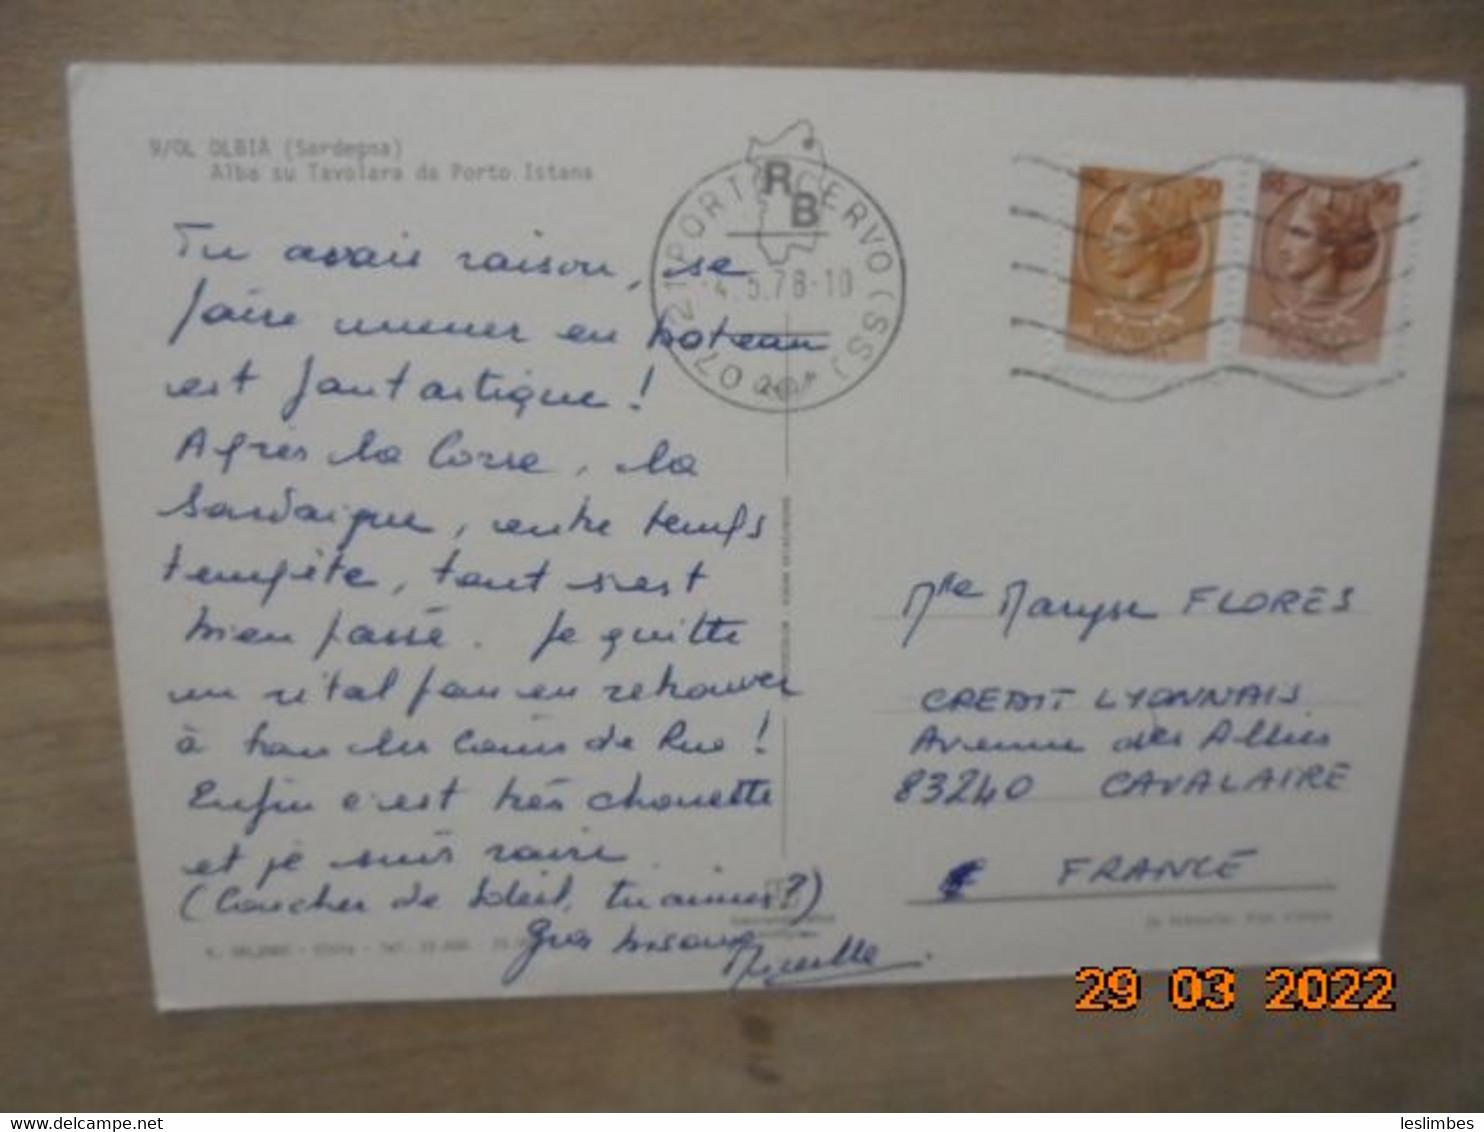 9/OL OLBIA (Sardegna)
Alba su Tavolara da Porto Istana
Tu avais raison, se
faire mener en bateau
est fantastique !
Après la Corse, la
Sardaigne, entre temps
tempête, tout s'est
bien passé. Je quitte
un rital pour en retrouver
à tous les coins de Rue !
Enfin c'est très chouette
et je suis ravie.
(Coucher de Soleil, tu aimes ?)
Gros bisous
Mireille
07021 PORTO CERVO (SS)
4.5.78-10
RB
50
90
Mlle Maryse FLORES
CREDIT LYONNAIS
Avenue des Alliés
83240 CAVALAIRE
FRANCE
29 03 2022
leslimbes